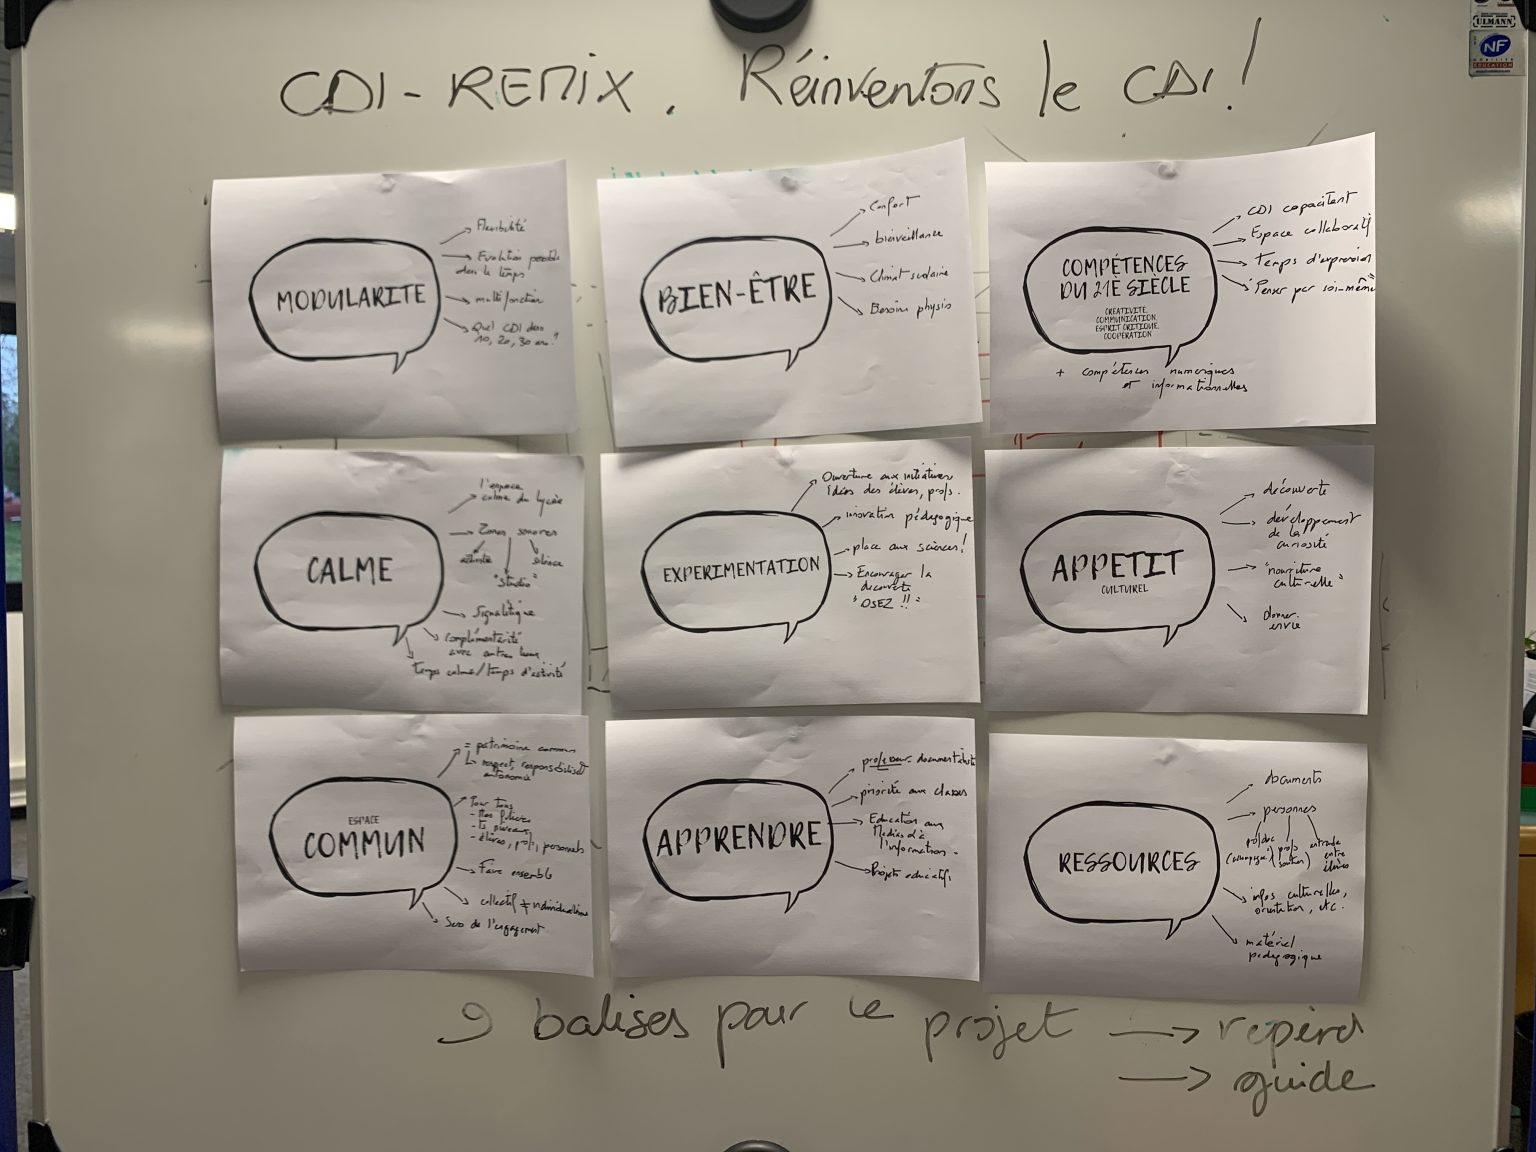 CDI-REMIX. Réinventons le CDI!
ULMANN
NF
MOBILIER
EDUCATION
MODULARITE
Flexibilité
Evolution possible
dans le temps
multifonction
Quel CDI dans
10, 20, 30 ans?
BIEN-ÊTRE
Confort
bienveillance
Climat scolaire
Besoins physio
COMPÉTENCES
DU 21E SIÈCLE
CREATIVITE,
COMMUNICATION,
ESPRIT CRITIQUE,
COOPERATION
CDI capacitant
Espace collaboratif
Temps d'expression
"Penser par soi-même"
+ compétences numériques
et informationnelles
CALME
l'espace
calme du lycée
Zones sonores
activité
silence
"studio"
Signalétique
complémentarité
avec autres lieux
temps calme/temps d'activité
EXPERIMENTATION
Ouverture aux initiatives
Idées des élèves, profs.
inovation pédagogique
place aux sciences!
Encourager la
découverte
"OSEZ !!"
APPETIT
CULTUREL
découverte
développement
de la
curiosité
"nourriture
culturelle"
donner
envie
ESPACE
COMMUN
= patrimoine commun
respect, responsabilisat°
autonomie
Pour tous
- élèves, profs, personnels
Faire ensemble
collectif ≠ individualisme
Sens de l'engagement
APPRENDRE
professeur-documentaliste
priorité aux classes
Education aux
Médias et à
l'information.
Projets éducatifs
RESSOURCES
documents
personnes
profdoc
profs
entraide
(soutien)
entre
élèves
infos culturelles,
orientation, etc.
matériel
pédagogique
9 balises pour le projet → repère
→ guide